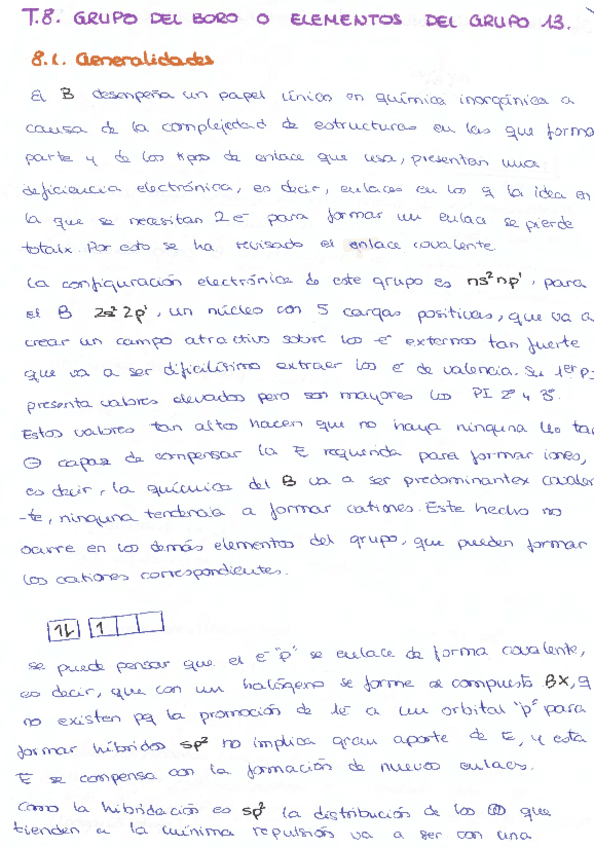 T.8. GRUPO DEL BORO O ELEMENTOS DEL GRUPO 13.
8.1. Generalidades
El B desempeña un papel único en química inorgánica a
causa de la complejidad de estructuras en las que forma
parte y de los tipos de enlace que usa, presentan una
deficiencia electrónica, es decir, enlaces en los q la idea en
la que se necesitan 2e⁻ para formar un enlace se pierde
totalx. Por esto se ha revisado el enlace covalente.
La configuración electrónica de este grupo es ns²np¹, para
el B 2s²2p¹, un núcleo con 5 cargas positivas, que va a
crear un campo atractivo sobre los e⁻ externos tan fuerte
que va a ser dificilísimo extraer los e⁻ de valencia. Su 1er P.
presenta valores elevados pero son mayores los PI 2º y 3º.
Estos valores tan altos hacen que no haya ninguna
⊖ capaz de compensar la E requerida para formar iones,
es decir, la química del B va a ser predominantex covalen
-te, ninguna tendencia a formar cationes. Este hecho no
ocurre en los demás elementos del grupo, que pueden formar
los cationes correspondientes.
1L 1
se puede pensar que el e⁻ "p" se enlace de forma covalente,
es decir, que con un halógeno se forme el compuesto BX, q
no existen pq la promoción de 1e⁻ a un orbital "p" para
formar híbridos sp² no implica gran aporte de E, y esta
E se compensa con la formación de nuevos enlaces.
Como la hibridación es sp² la distribución de los que
tienden a la mínima repulsión va a ser con una